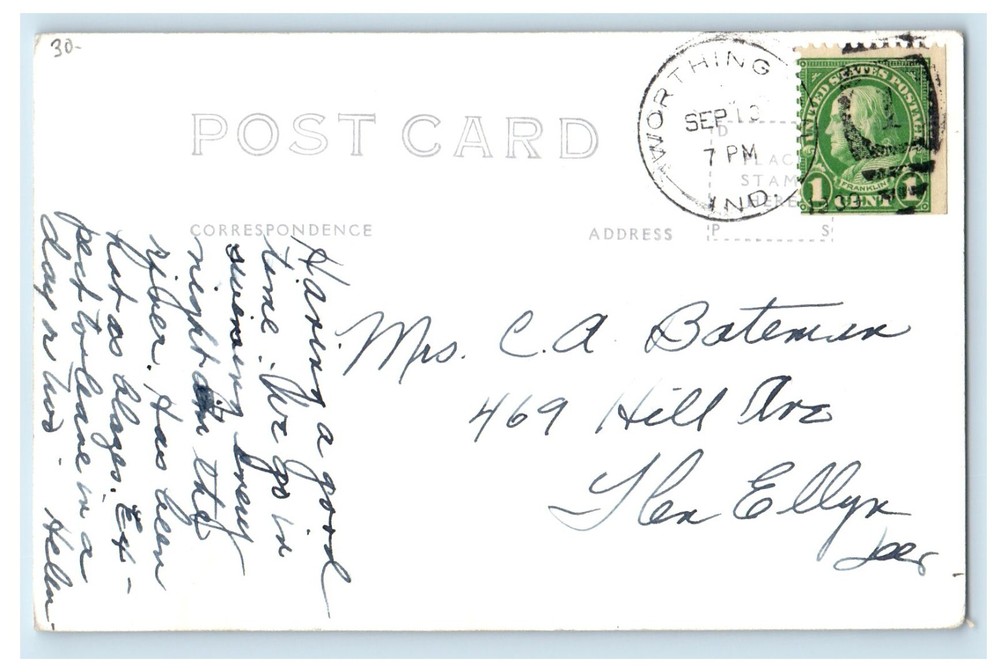 30-
POST CARD
WORTHING
SEP 13
7 PM
IND.
UNITED STATES POSTAGE
FRANKLIN
1 CENT 1
PLACE
STAMP
HERE
P S
CORRESPONDENCE
ADDRESS
Having a good
time. We go in
swimming every
night in the
river. Has been
hot as blazes. Ex-
pect to leave in a
day or two - Helen
Mrs. C. A. Bateman
469 Hill Ave
Glen Ellyn